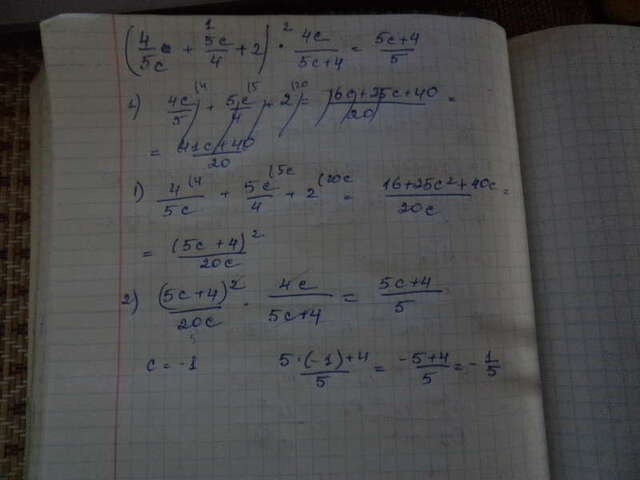 (4/5c + 5c/4 + 2) ·² 4c/5c+4 = 5c+4/5
1) 4c/5 (4 + 5c/4 (5 + 2 (20 = 16c+25c+40/20 =
= 41c+40/20
1) 4/5c (4 + 5c/4 (5c + 2 (20c = 16+25c²+40c/20c =
= (5c+4)²/20c
2) (5c+4)²/20c · 4c/5c+4 = 5c+4/5
c = -1 5·(-1)+4/5 = -5+4/5 = -1/5